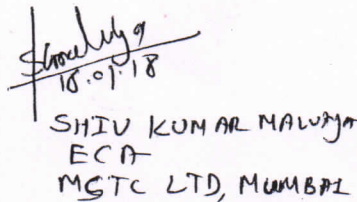 18.07.18
SHIV KUMAR MALVIYA
ECA
MSTC LTD, MUMBAI